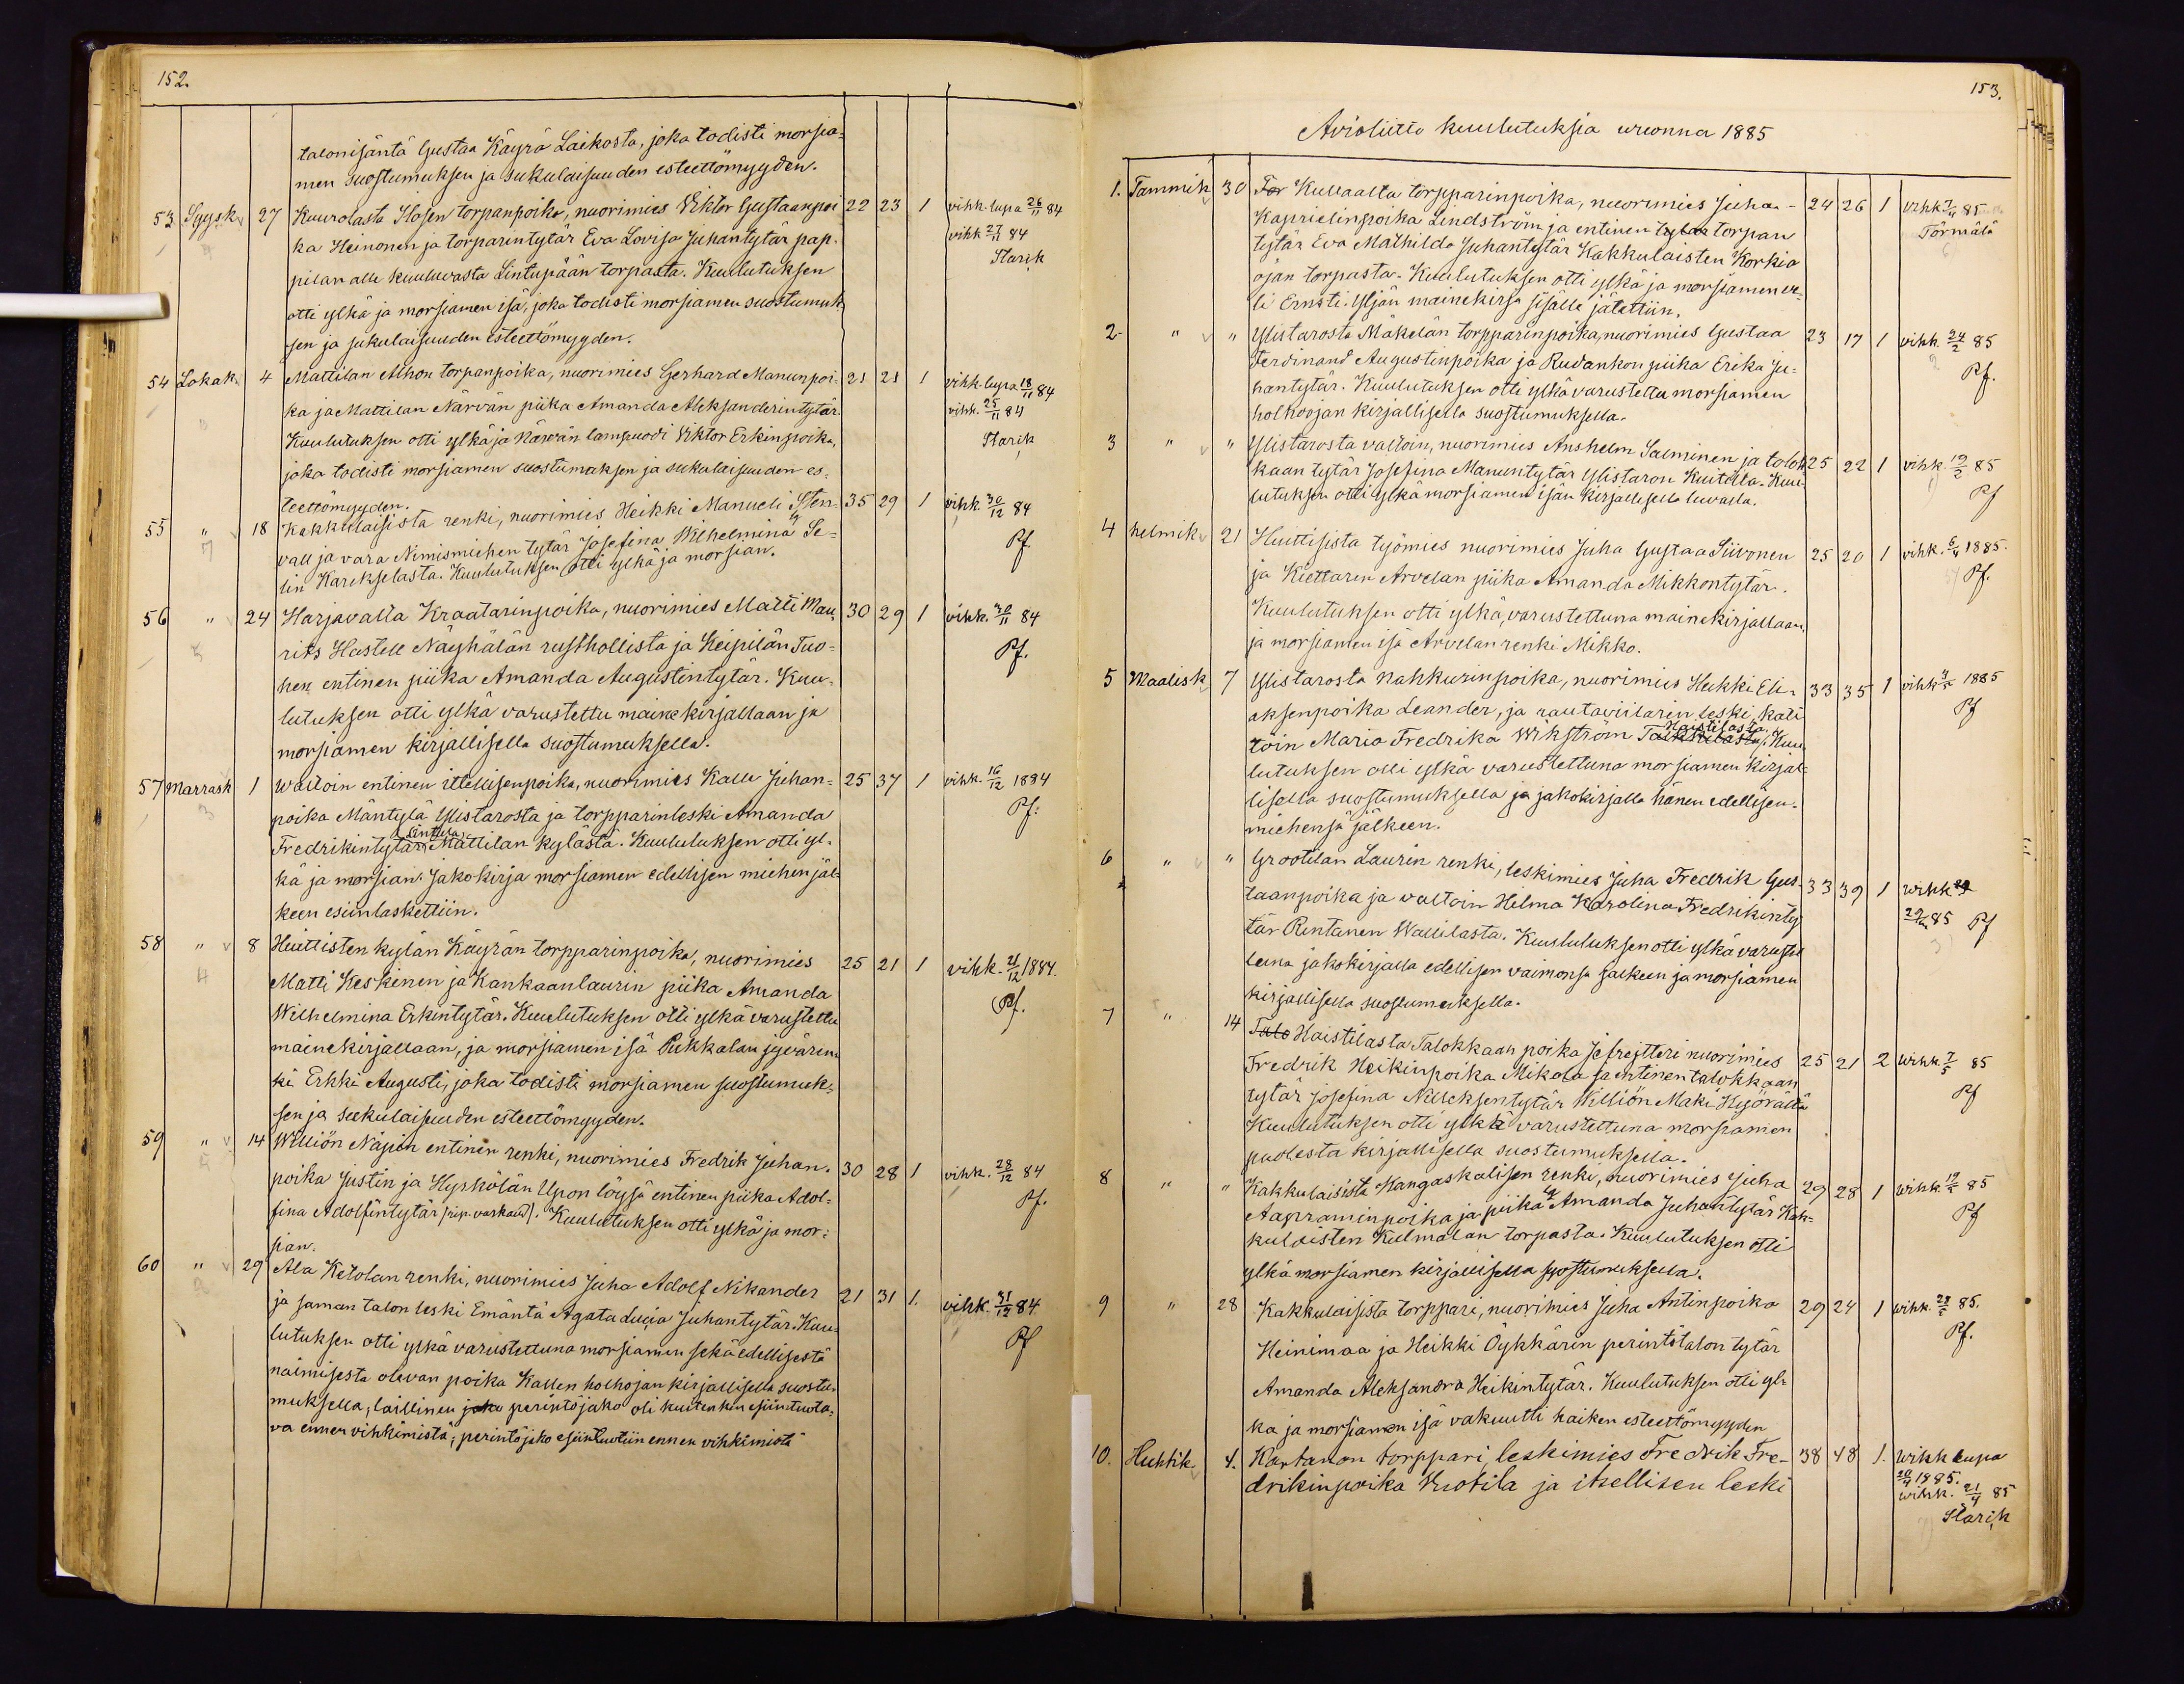 152.
talonisäntä Gustaa Käyrä Laikosta, joka todisti morsia-
men suostumuksen ja sukulaisuuden esteettömyyden.
53 Syysk. 27 Kuurolasta Ilosen torpanpoika, nuorimies Viktor Gustaanpoi 22 23 1 vihk-lupa 26/11 84
ka Heinonen ja torparintytär Eva Lovisa Juhantytär pap- vihk 27/11 84
pilan alle kuuluvasta Lintupään torpasta. Kuulutuksen Starik
otti ylkä ja morsiamen isä, joka todisti morsiamen suostumuk-
sen ja sukulaisuuden esteettömyyden.
54 Lokak. 4 Mattilan Alhon torpanpoika, nuorimies Gerhard Manunpoi- 21 21 1 vihk-lupa 18/11 84
ka ja Mattilan Närvän piika Amanda Aleksanderintytär. vihk. 25/11 84
Kuulutuksen otti ylkä ja Närvän lampuodi Viktor Erkinpoika, Starik
joka todisti morsiamen suostumuksen ja sukulaisuuden es-
teettömyyden.
55 " 18 Kakkulaisista renki, nuorimies Heikki Manueli Sten- 35 29 1 vihk. 30/12 84
vall ja vara Nimismiehen tytär Josefina Wilhelmina Se- Pf
lin Karekselasta. Kuulutuksen otti ylkä ja morsian.
56 " 24 Harjavalta Kraatarinpoika, nuorimies Matti Mau- 30 29 1 vihk. 30/11 84
rits Hastell Näyhälän rusthollista ja Keipilän Tuo- Pf.
hen entinen piika Amanda Augustintytär. Kuu-
lutuksen otti ylkä varustettu mainekirjallaan ja
morsiamen kirjallisella suostumuksella.
57 Marrask 1 Waltoin entinen ittellisenpoika, nuorimies Kalle Juhan- 25 37 1 vihk. 16/12 1884
poika Mäntylä Ylistarosta ja torpparinleski Amanda Pf.
Fredrikintytär Mattilan kylästä. Kuulutuksen otti yl-
kä ja morsian. Jakokirja morsiamen edellisen miehen jäl-
keen esiinlaskettiin.
58 " 8 Huittisten kylän Käyrän torpparinpoika, nuorimies 25 21 1 vihk. 21/12 1884.
Matti Keskinen ja Kankaanlaurin piika Amanda Pf.
Wilhelmina Erkintytär. Kuulutuksen otti ylkä varustettu
mainekirjallaan, ja morsiamen isä Pukkalan jyvären-
ki Erkki Augusti, joka todisti morsiamen suostumuk-
sen ja sukulaisuuden esteettömyyden.
59 " 14 Williön Näpin entinen renki, nuorimies Fredrik Juhan- 30 28 1 vihk. 28/12 84
poika Justin ja Hyrkölän Upon löysä entinen piika Adol- Pf.
fina Adolfintytär Kuulutuksen otti ylkä ja mor-
sian.
60 " 29 Ala Ketolan renki, nuorimies Juha Adolf Nikander 21 31 1. vihk. 31/12 84
ja saman talon leski Emäntä Agata Juhantytär. Kuu- Pf
lutuksen otti ylkä varustettuna morsiamen sekä edellisestä
naimisesta olevan poika Kallen holhojan kirjallisella suostu-
muksella; laillinen jako perintöjako oli kuitenkin esiin tuota-
va ennen vihkimistä; perintöjako esiintuotiin ennen vihkimistä
153.
Avioliitto kuulutuksia wuonna 1885
1. Tammik 30 Tor Kullaalta torpparinpoika, nuorimies Juha - 24 26 1 vihk 7/4 85
Kaprielinpoika Lindström ja entinen tytär torpan Törmälä
tytär Eva Mathilda Juhantytär Kakkulaisten Korkia
ojan torpasta. Kuulutuksen otti ylkä ja morsiamen ve-
li Ernsti. Yljän mainekirja sisälle jätettiin.
2- " " Ylistarosta Mäkelän torpparinpoika, nuorimies Gustaa 23 17 1 vihk. 24/2 85
Ferdinand Augustinpoika ja Rudankon piika Erika Ju- Pf.
hantytär. Kuulutuksen otti ylkä varustettu morsiamen
holhoojan kirjallisella suostumuksella.
3 " " Ylistarosta valtoin, nuorimies Anshelm Salminen ja talok 25 22 1 vihk. 19/2 85
kaan tytär Josefina Manuntytär Ylistaron Kuitilla. Kuu- Pf
lutuksen otti ylkä morsiamen isän kirjallisella luvalla.
4 helmik 21 Huittisista työmies nuorimies Juha Gustaa Siivonen 25 20 1 vihk. 6/4 1885.
ja Kiettaren Arvelan piika Amanda Mikkontytär. Pf.
Kuulutuksen otti ylkä, varustettuna mainekirjallaan,
ja morsiamen isä Arvelan renki Mikko.
5 Maalisk 7 Ylistarosta nahkurinpoika, nuorimies Heikki Eli- 33 35 1 vihk 1885
aksenpoika Leander, ja rautaviilarin leski, Pf
toin Maria Fredrika Wikström Haistilasta. Kuu-
lutuksen otti ylkä varustettuna morsiamen kirjal-
lisella suostumuksella ja jakokirjalla hänen edellisen
miehensä jälkeen.
6 " " Grootilan Laurin renki, leskimies Juha Fredrik Gus- 33 39 1 wihk
taanpoika ja valtoin Helma Karolina Fredrikinty 85 Pf
tär Rintanen Wallilasta. Kuulutuksen otti ylkä varustet
tuna jakokirjalla edellisen vaimonsa jälkeen ja morsiamen
kirjallisella suostumuksella.
7 " 14 Talo Haistilasta Talokkaan poika Jefreitteri nuorimies 25 21 2 wihk. 7/5 85
Fredrik Heikinpoika Mikola ja entinen talokkaan Pf
tytär Josefina Nilleksentytär Williön Mäki Hyörältä
Kuulutuksen otti ylkä varustettuna morsiamen
puolesta kirjallisella suostumuksella.
8 " " Kakkulaisista Kangaskalisen renki, nuorimies Juha 29 28 1 wihk. 85
Aapraminpoika ja piika Amanda Juhantytär Kak- Pf
kulaisten Kulmalan torpasta. Kuulutuksen otti
ylkä morsiamen kirjallisella suostumuksella.
9 " 28 Kakkulaisista torppari, nuorimies Juha Antinpoika 29 24 1 wihk. 85.
Heinimaa ja Heikki Öykkärin perintötalon tytär Pf.
Amanda Aleksandra Heikintytär. Kuulutuksen otti yl-
kä ja morsiamen isä vakuutti kaiken esteettömyyden
10. Huhtik. 4. Kartanon torppari, leskimies Fredrik Fre- 38 48 1. wihk lupa
drikinpoika Knotila ja itsellisen leski 20/4 1885.
wihk. 21/4 85
Starik